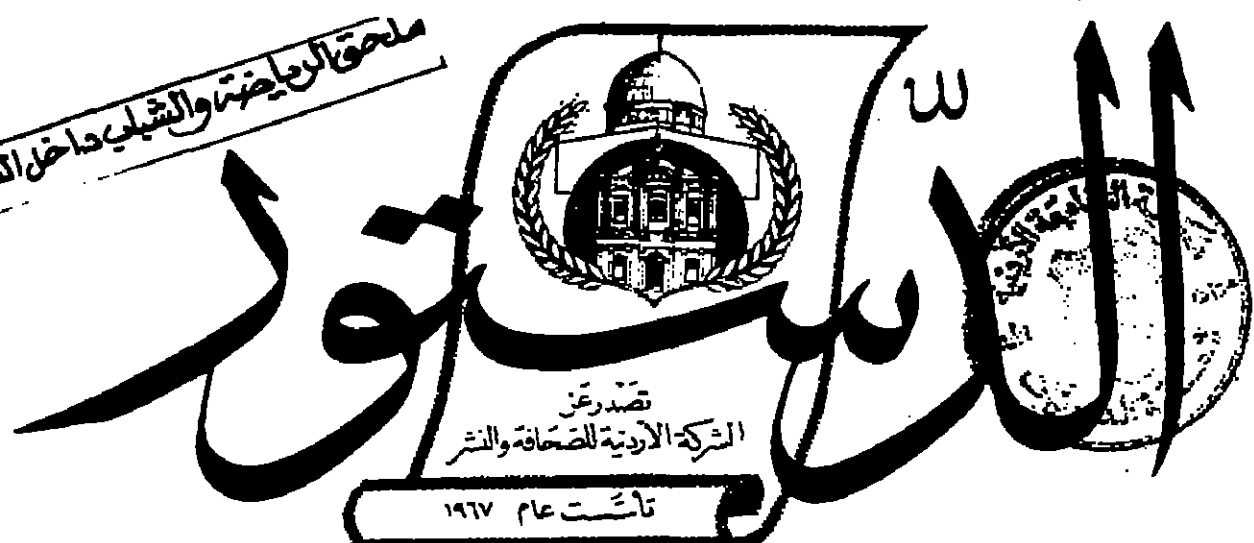 ملحق الرياضة والشباب داخل
الدستور
تصدر عن
الشركة الأردنية للصحافة والنشر
تأسست عام ١٩٦٧